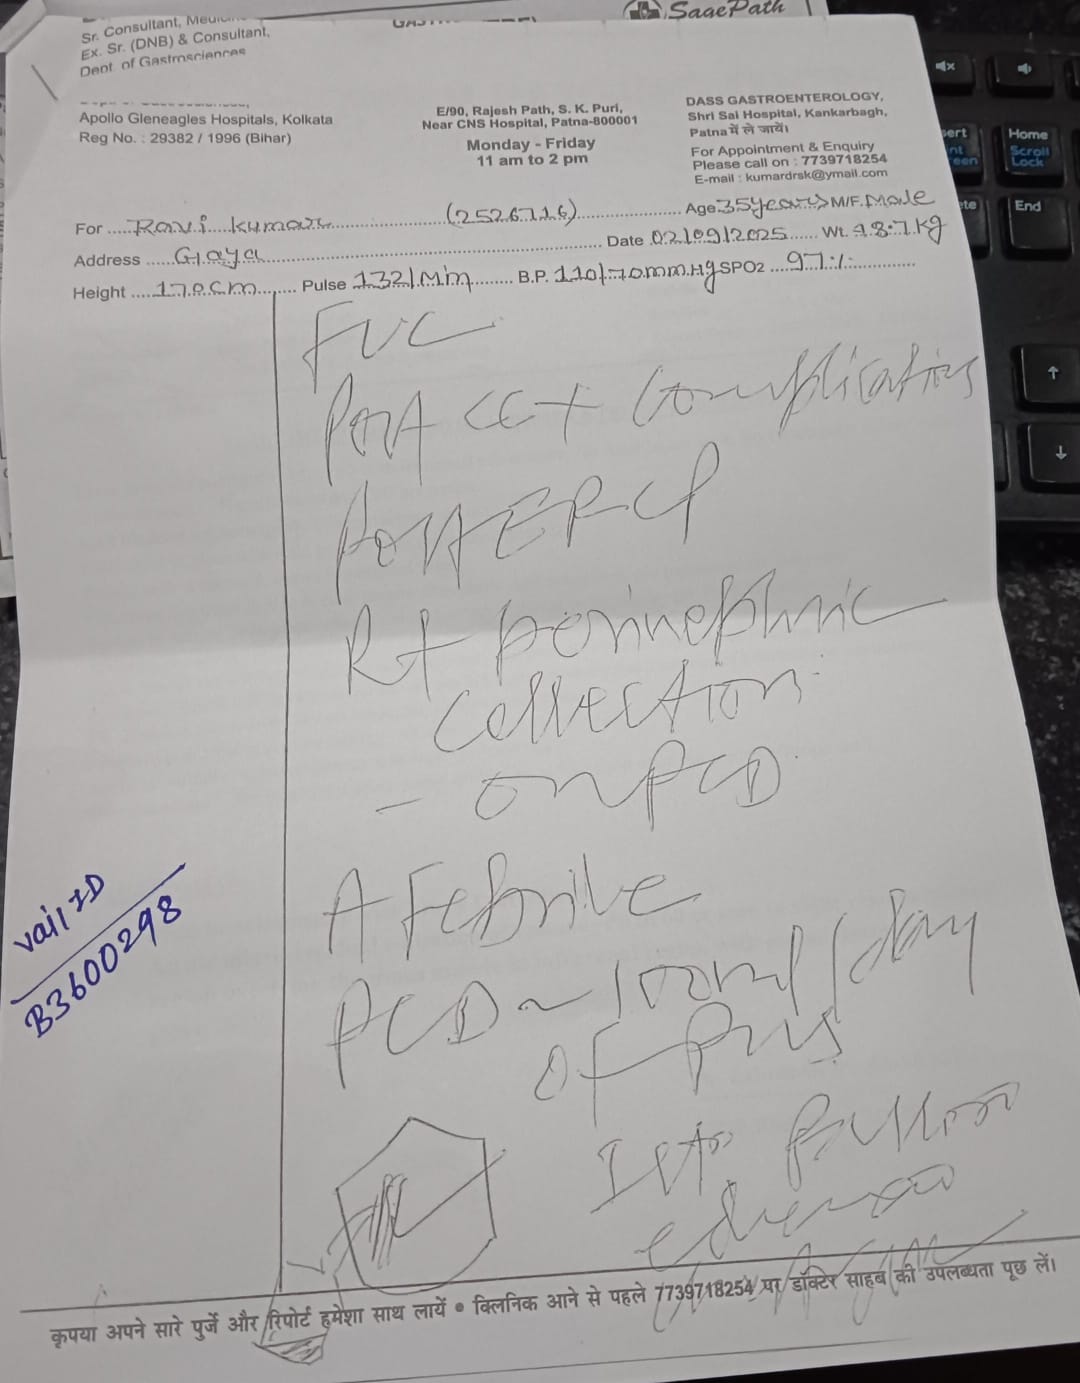 SagePath
Sr. Consultant,
Ex. Sr. (DNB) & Consultant,
Dept. of Gastrosciences
Apollo Gleneagles Hospitals, Kolkata
Reg No. : 29382 / 1996 (Bihar)
E/90, Rajesh Path, S. K. Puri,
Near CNS Hospital, Patna-800001
Monday - Friday
11 am to 2 pm
DASS GASTROENTEROLOGY,
Shri Sai Hospital, Kankarbagh,
Patna में ले जायें।
For Appointment & Enquiry
Please call on : 7739718254
E-mail : kumardrsk@ymail.com
For Ravi kumar (2526716) Age 35years M/F. Male
Address Gaya Date 02/09/2025 Wt. 48.7 kg
Height 170cm Pulse 132/Min B.P. 110/70mm.Hg SPO2 97%
FUC
Post CCx Complications
Post ERCP
Rt perinephric
collection
- on PCD
Afebrile
PCD ~ 100ml/day
of pus
edema
vail ID
B3600298
कृपया अपने सारे पुर्जे और रिपोर्ट हमेशा साथ लायें • क्लिनिक आने से पहले 7739718254 पर डॉक्टर साहब की उपलब्धता पूछ लें।
Home
Scroll
Lock
End